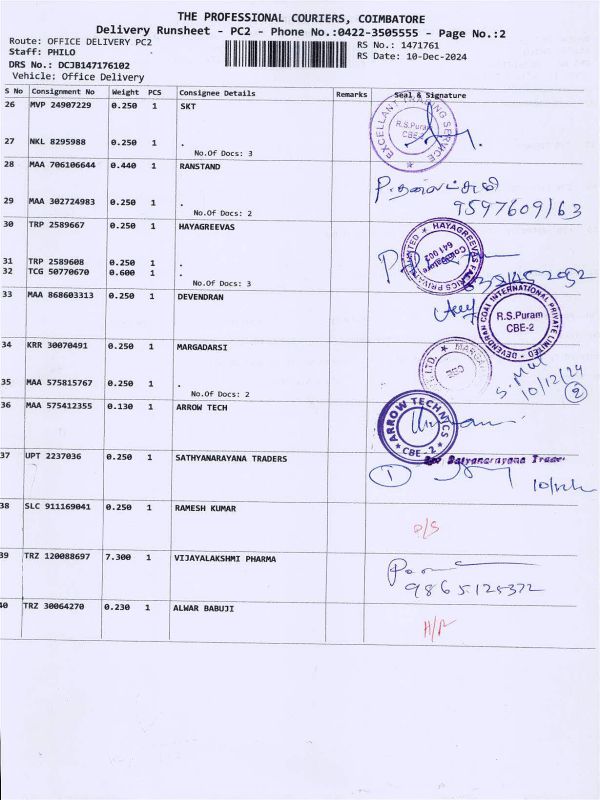 THE PROFESSIONAL COURIERS, COIMBATORE
Delivery Runsheet - PC2 - Phone No.:0422-3505555 - Page No.:2
Route: OFFICE DELIVERY PC2
Staff: PHILO
RS No.: 1471761
RS Date: 10-Dec-2024
DRS No.: DCJB147176102
Vehicle: Office Delivery
S No Consignment No Weight PCS Consignee Details Remarks Seal & Signature
26 MVP 24907229 0.250 1 SKT
EXCELLANT TRADING SERVICE
R.S.Puram
CBE-2
27 NKL 8295988 0.250 1 .
No.Of Docs: 3
28 MAA 706106644 0.440 1 RANSTAND
29 MAA 302724983 0.250 1 .
No.Of Docs: 2
9597609163
30 TRP 2589667 0.250 1 HAYAGREEVAS
Coimbatore
641 002
31 TRP 2589608 0.250 1 .
32 TCG 50770670 0.600 1 .
No.Of Docs: 3
33 MAA 868603313 0.250 1 DEVENDRAN
DEVENDRAN COAL INTERNATIONAL PRIVATE LIMITED
R.S.Puram
CBE-2
34 KRR 30070491 0.250 1 MARGADARSI
35 MAA 575815767 0.250 1 .
No.Of Docs: 2
10/12/24
2
36 MAA 575412355 0.130 1 ARROW TECH
ARROW TECHNICS
CBE-2
37 UPT 2237036 0.250 1 SATHYANARAYANA TRADERS
Satyanarayana Traders
1
38 SLC 911169041 0.250 1 RAMESH KUMAR
D/S
39 TRZ 120088697 7.300 1 VIJAYALAKSHMI PHARMA
9865125372
40 TRZ 30064270 0.230 1 ALWAR BABUJI